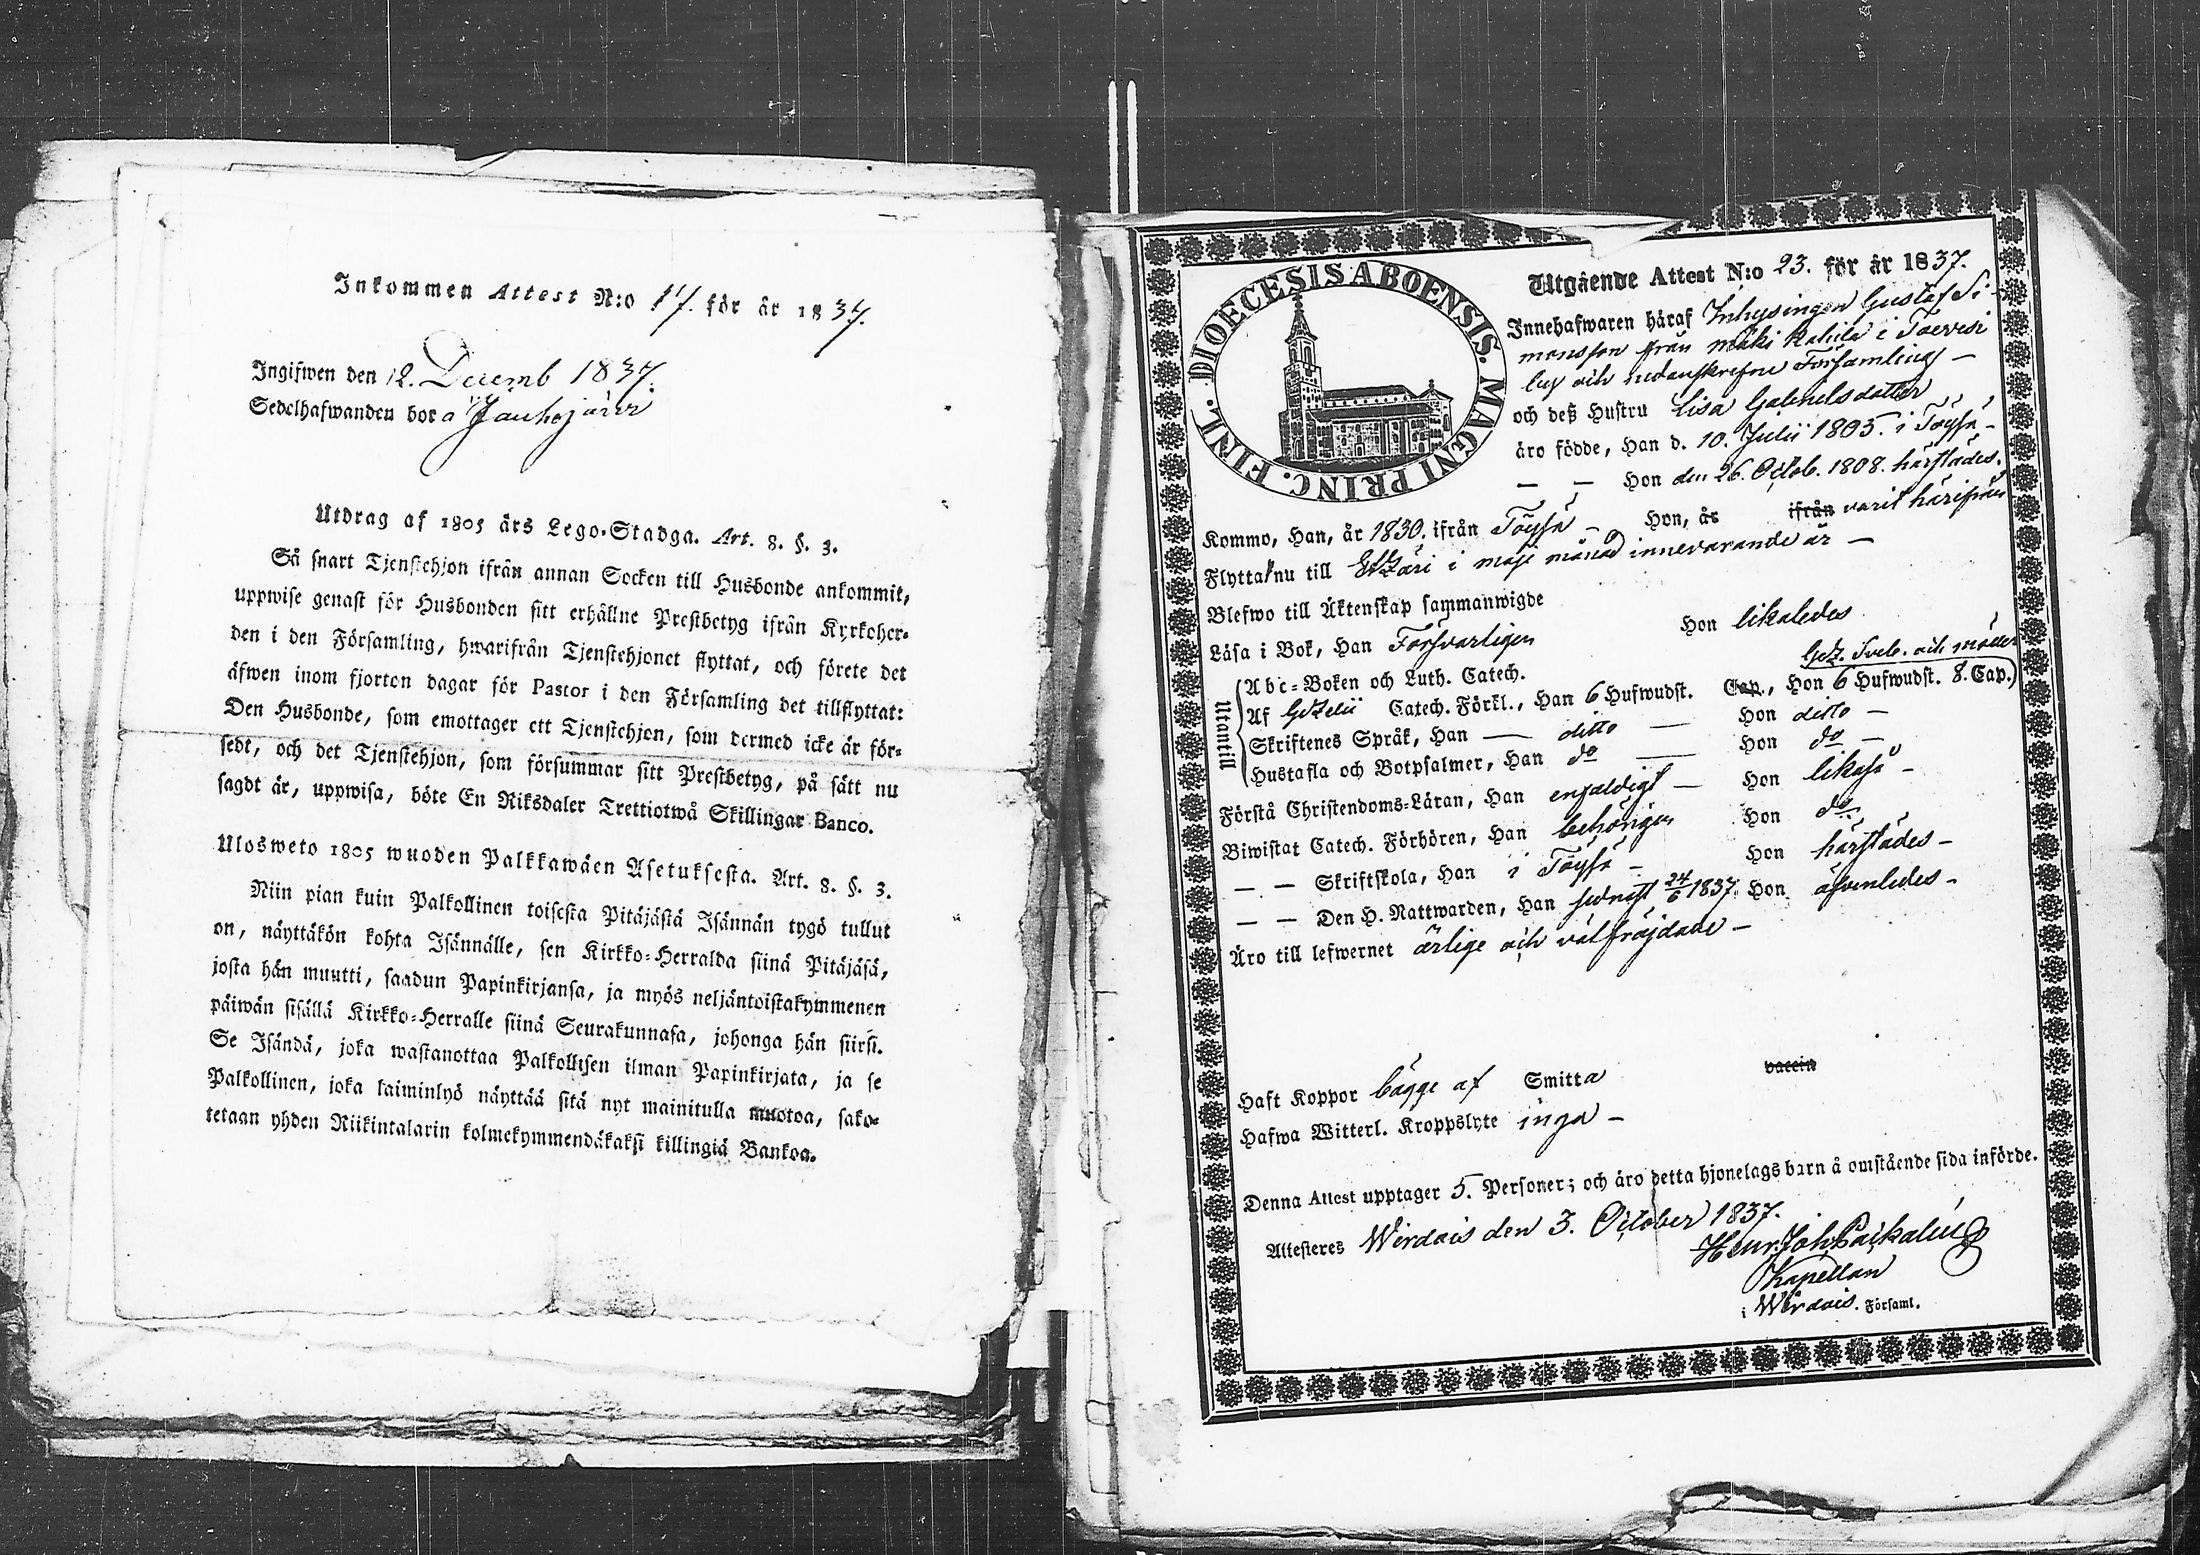 Inkommen Attest N:o 17. för år 1837.
Ingifwen den 12. Decemb 1837.
Sedelhafwanden bor å Jäuhojärvi
Utdrag af 1805 års Lego-Stadga. Art. 8. §. 3.
Så snart Tjenstehjon ifrån annan Socken till Husbonde ankommit,
uppwise genast för Husbonden sitt erhållne Prestbetyg ifrån Kyrkoher-
den i den Församling, hwarifrån Tjenstehjonet flyttat, och förete det
äfwen inom fjorton dagar för Pastor i den Församling det tillflyttat:
Den Husbonde, som emottager ett Tjenstehjon, som dermed icke är för-
sedt, och det Tjenstehjon, som försummar sitt Prestbetyg, på sätt nu
sagdt är, uppwisa, böte En Riksdaler Trettiotwå Skillingar Banco.
Ulosweto 1805 wuoden Palkkawäen Asetuksesta. Art. 8. §. 3.
Niin pian kuin Palkollinen toisesta Pitäjästä Isännän tygö tullut
on, näyttäkön kohta Isännälle, sen Kirkko-Herralda siinä Pitäjäsä,
josta hän muutti, saadun Papinkirjansa, ja myös neljäntoistakymmenen
päiwän sisällä Kirkko-Herralle siinä Seurakunnasa, johonga hän siirsi.
Se Isändä, joka wastanottaa Palkollisen ilman Papinkirjata, ja se
Palkollinen, joka laiminlyö näyttää sitä nyt mainitulla muotoa, sako-
tetaan yhden Riikintalarin kolmekymmendäkaksi killingiä Bankoa.
DIOECESIS ABOENSIS. MAGNI PRINC. FINL.
Utgående Attest N:o 23. för år 1837.
Innehafwaren häraf Inhysingen Gustaf Si-
monsson från mäki Kaliila i Toevesi
by och nedanskrefne Församling –
och deß Hustru Lisa Gabrielsdotter
äro födde, Han d. 10. Julii 1805. i Töysä –
— — Hon den 26. Octob. 1808. härstädes.
Kommo, Han, år 1830. ifrån Töysä – Hon, år ifrån varit härifrån
Flytta nu till Etzäri i maji månad innevarande år –
Blefwo till Äktenskap sammanwigde
Läsa i Bok, Han Försvarligen Hon likaledes
Getz. Sveb. och möller
Utantill
Abc-Boken och Luth. Catech.
Af Getzelii Catech. Förkl., Han 6 Hufwudst. Cap., Hon 6 Hufwudst. 8. Cap.)
Skriftenes Språk, Han — ditto — Hon ditto –
Hustafla och Botpsalmer, Han do — Hon do –
Förstå Christendoms-Läran, Han enfaldigt – Hon likaså –
Biwistat Catech. Förhören, Han behörigen Hon do
— — Skriftskola, Han i Töysä – Hon härstädes –
— — Den H. Nattwarden, Han sednast 24/6 1837. Hon äfvenledes –
Äro till lefwernet ärlige och välfräjdade –
Haft Koppor bägge af Smitta vaccin
Hafwa Witterl. Kroppslyte inga –
Denna Attest upptager 5. Personer; och äro detta hjonelags barn å omstående sida införde.
Attesteres Wirdois den 3. October 1837.
Henr. Joh.
Kapellan
i Wirdois. Församl.